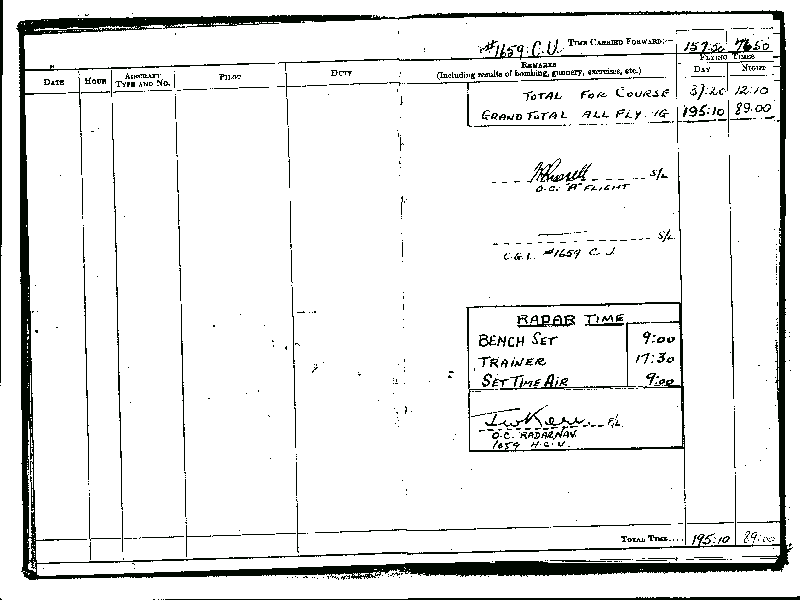 #1659 C.U. TIME CARRIED FORWARD:— 157:50 76:50
DATE HOUR AIRCRAFT TYPE AND NO. PILOT DUTY REMARKS FLYING TIMES
(Including results of bombing, gunnery, exercises, etc.) DAY NIGHT
TOTAL FOR COURSE 37:20 12:10
GRAND TOTAL ALL FLY IG 195:10 89:00
S/L
O.C. "A" FLIGHT
S/L
C.G.I. #1659 C.U.
RADAR TIME
BENCH SET 9:00
TRAINER 17:30
SET TIME AIR 9:00
F/L
O.C. RADAR NAV.
1659 H.C.U.
TOTAL TIME.... 195:10 89:00